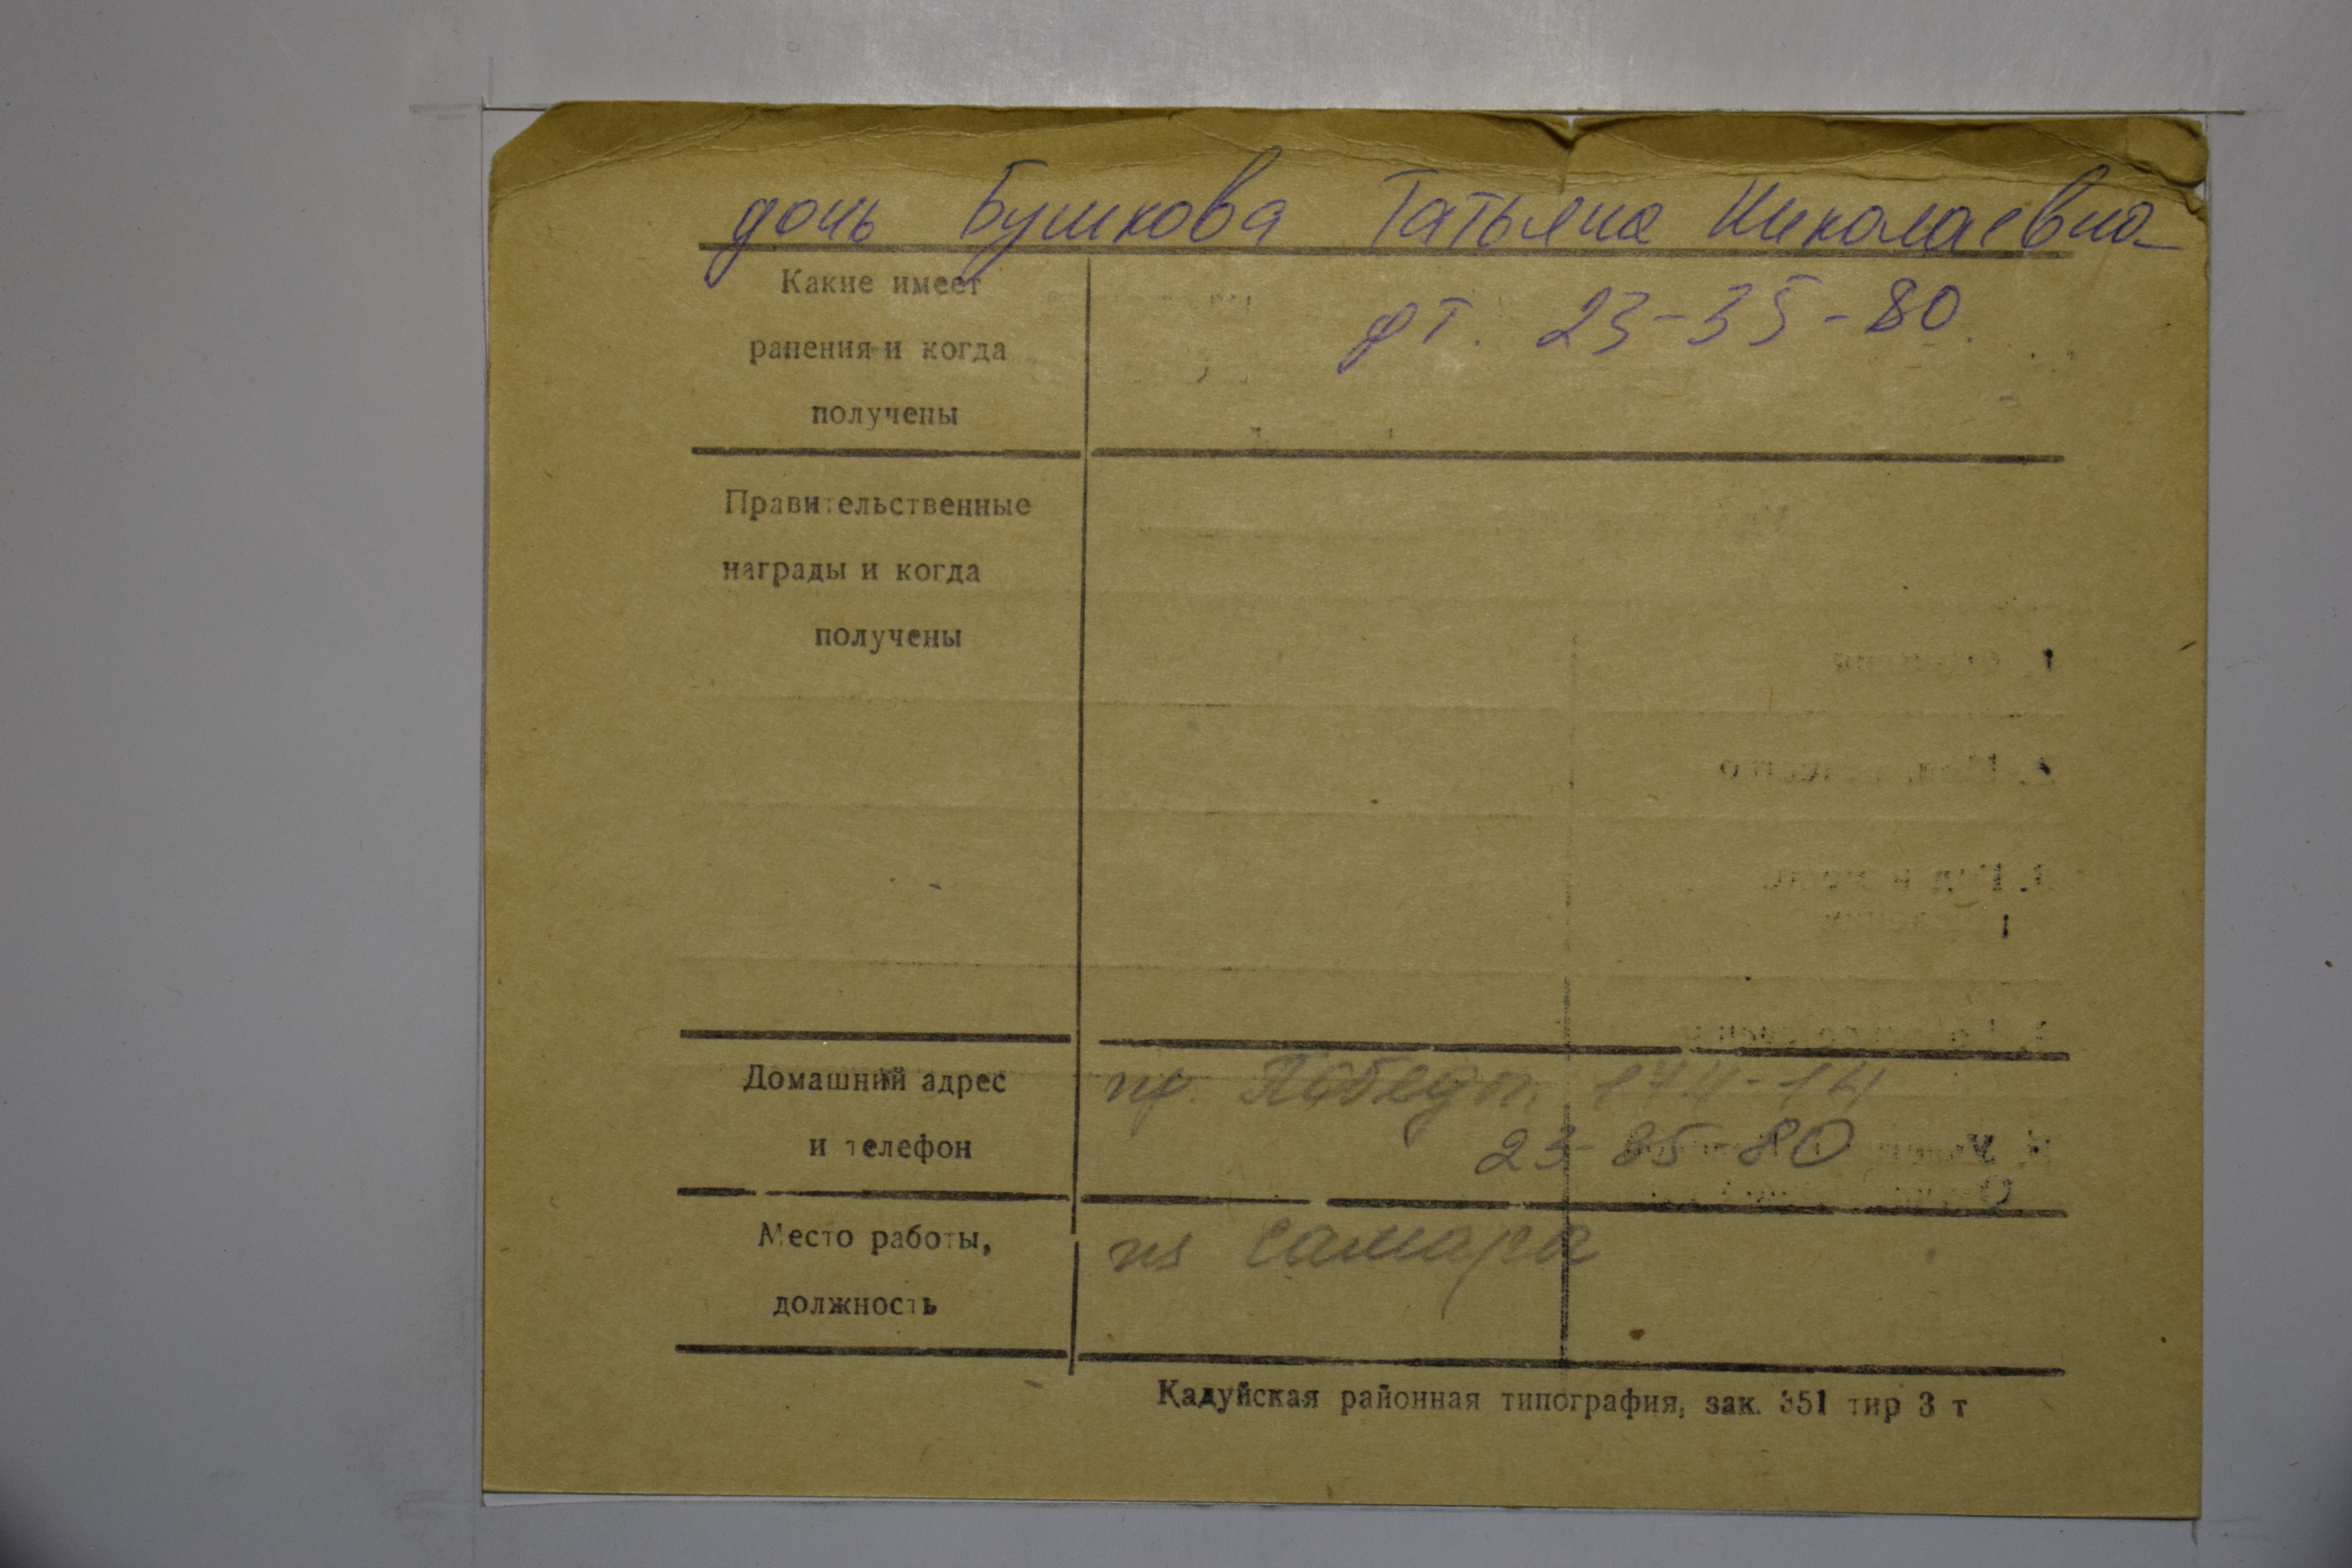 дочь Бушкова Татьяна Николаевна
Какие имеет
ранения и когда
получены
рт. 23-35-80
Правительственные
награды и когда
получены
Домашний адрес
и телефон
пр. Победы, 174-14
23-35-80
Место работы,
должность
из Самары
Кадуйская районная типография, зак. 351 тир 3 т